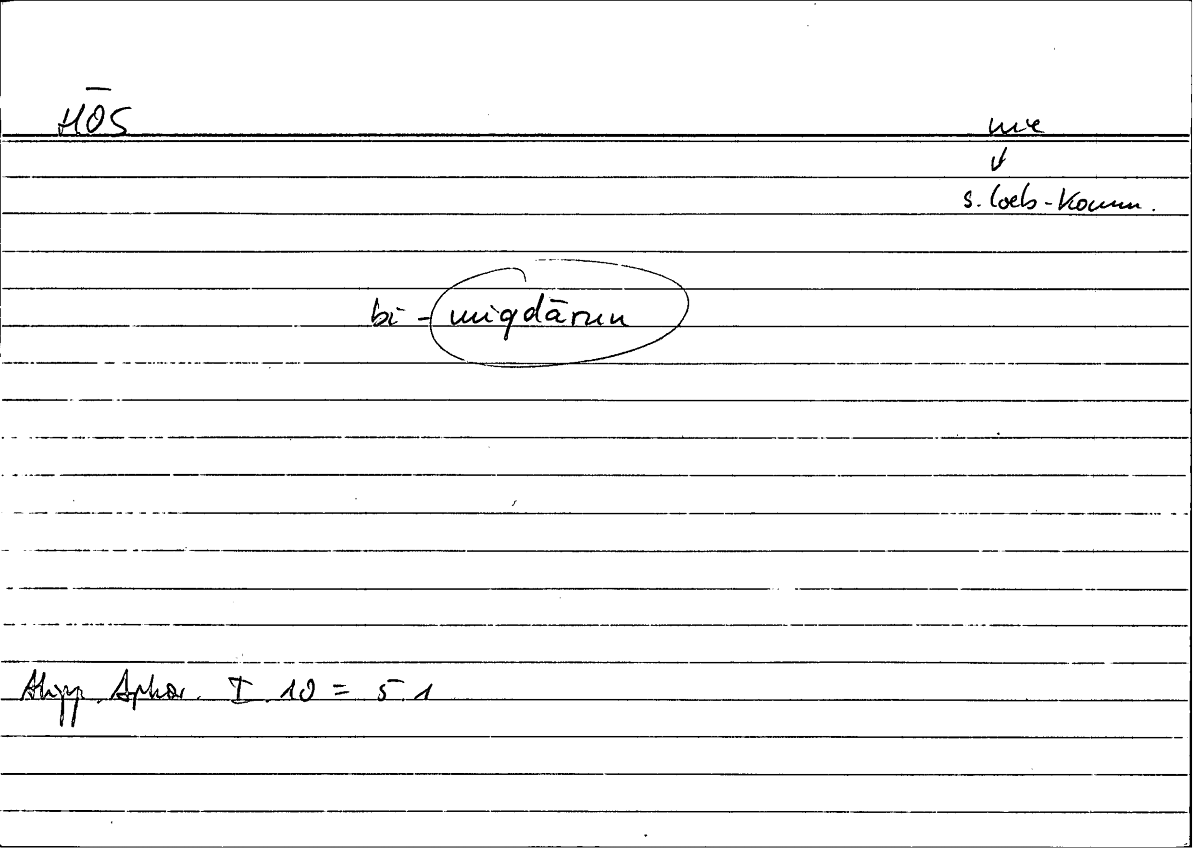 HŌS
wie
s. Loeb-Komm.
bi-miqdārun
Hipp. Aphor. I 10 = 5.1